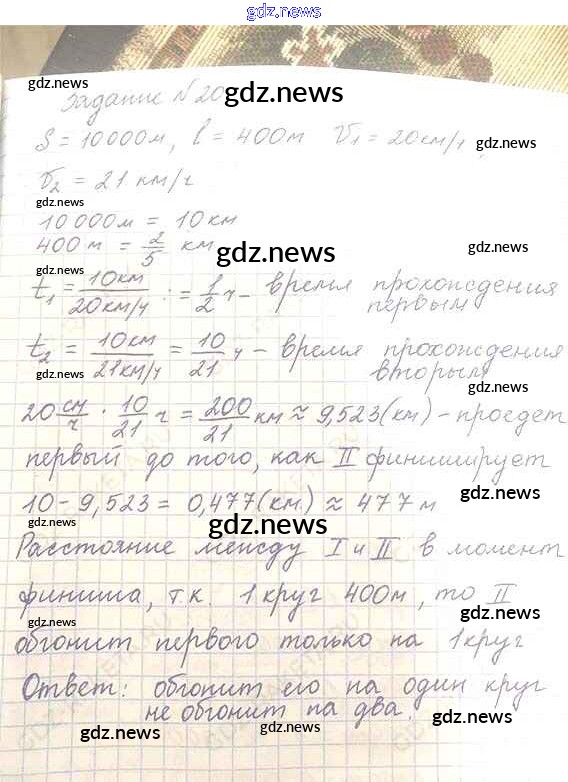 gdz.news
gdz.news
Задание N 20 gdz.news
S = 10000м, l = 400м V₁ = 20км/ч, gdz.news
V₂ = 21 км/ч
gdz.news
10 000м = 10 км
400м = 2/5 км gdz.news gdz.news
gdz.news
t₁ = 10км/20км/ч := 1/2 ч - время прохождения
первым
gdz.news gdz.news
t₂ = 10км/21км/ч = 10/21 ч - время прохождения
вторым
gdz.news gdz.news
20 см/ч · 10/21 ч = 200/21 км ≈ 9,523(км) - проедет
первый до того, как II финиширует
10 - 9,523 = 0,477(км) ≈ 477 м gdz.news
gdz.news gdz.news
Расстояние между I и II в момент
финиша, т.к. 1 круг 400м, то II
gdz.news gdz.news
обгонит первого только на 1 круг
Ответ: обгонит его на один круг
не обгонит на два.
gdz.news gdz.news gdz.news